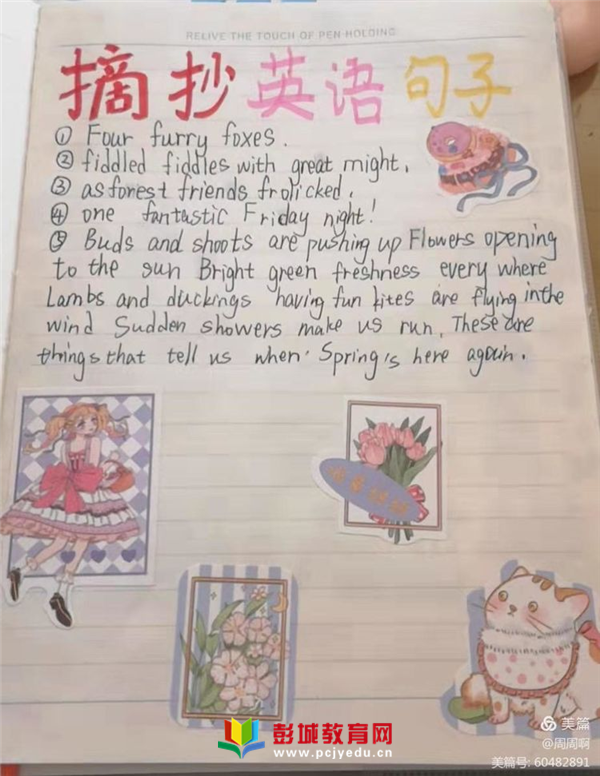 RELIVE THE TOUCH OF PEN HOLDING
摘抄英语句子
① Four furry foxes.
② fiddled fiddles with great might.
③ as forest friends frolicked.
④ one fantastic Friday night!
⑤ Buds and shoots are pushing up Flowers opening
to the sun Bright green freshness every where
Lambs and duckings having fun kites are flying in the
wind Sudden showers make us run. These are
things that tell us when. Spring's here again.
彭城教育网
www.pcjyedu.cn
美篇
@周周啊
美篇号: 60482891